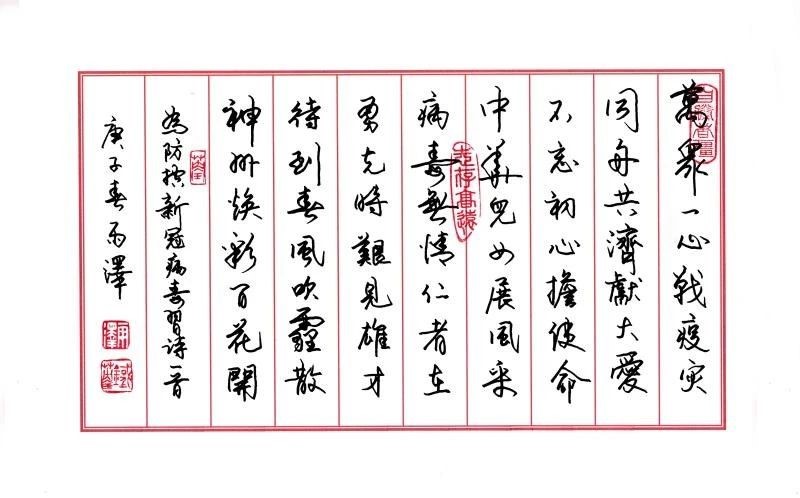 萬眾一心戰疫灾
同舟共濟獻大愛
不忘初心擔使命
中華兒女展風采
病毒無情仁者在
勇克時艱見雄才
待到春風吹霾散
神州焕彩百花開
為防控新冠病毒習诗一首
庚子春雨澤
志存高遠